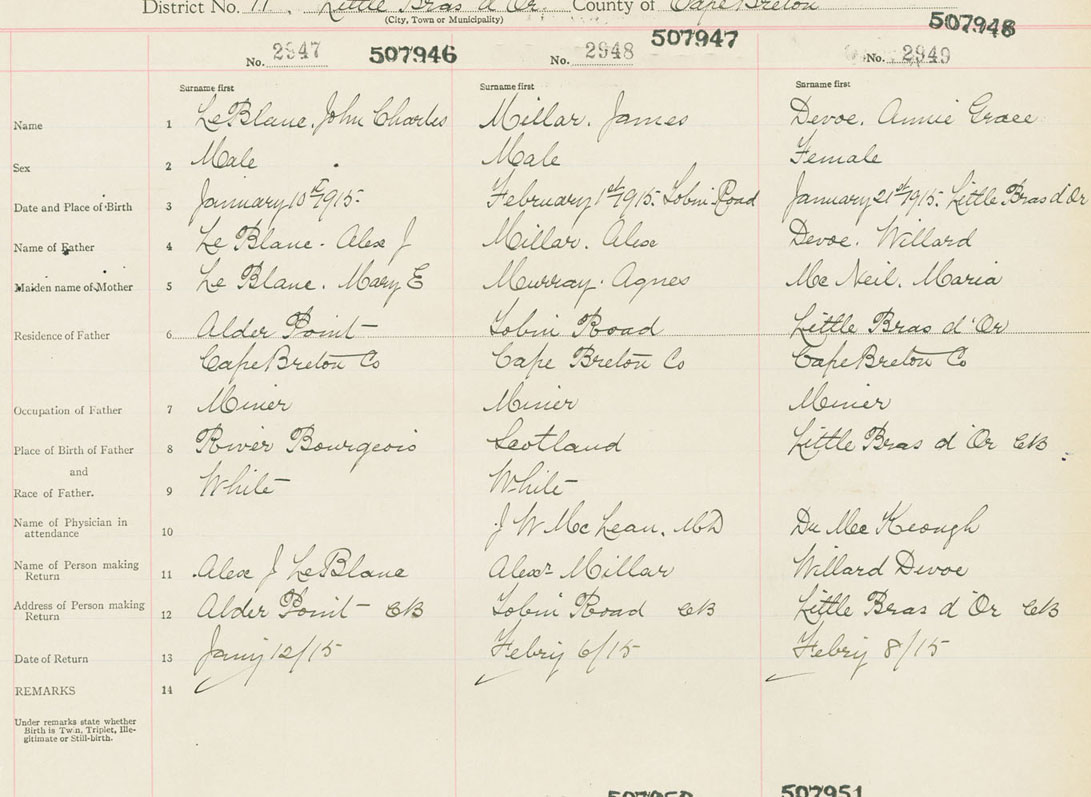 District No. 11. Little Bras d'Or. County of Cape Breton
(City, Town or Municipality)
No. 2947 507946 No. 2948 507947 No. 2949 507948
Surname first Surname first Surname first
Name 1 LeBlanc. John Charles Millar. James Devoe. Annie Grace
Sex 2 Male Male Female
Date and Place of Birth 3 January 10th 1915. February 1st 1915. Lobin Road January 21st 1915. Little Bras d'Or
Name of Father 4 Le Blanc. Alex J Millar. Alex Devoe. Willard
Maiden name of Mother 5 Le Blanc. Mary E Murray. Agnes Mc Neil. Maria
Residence of Father 6 Alder Point Lobin Road Little Bras d'Or
Cape Breton Co Cape Breton Co Cape Breton Co
Occupation of Father 7 Miner Miner Miner
Place of Birth of Father 8 River Bourgeois Scotland Little Bras d'Or CB
and
Race of Father. 9 White White
Name of Physician in
attendance 10 J W Mc Lean. MD Dr Mc Keough
Name of Person making
Return 11 Alex J LeBlanc Alexr Millar Willard Devoe
Address of Person making
Return 12 Alder Point CB Lobin Road CB Little Bras d'Or CB
Date of Return 13 Jany 12/15 Febry 6/15 Febry 8/15
REMARKS 14
Under remarks state whether
Birth is Twin, Triplet, Ille-
gitimate or Still-birth.
507951